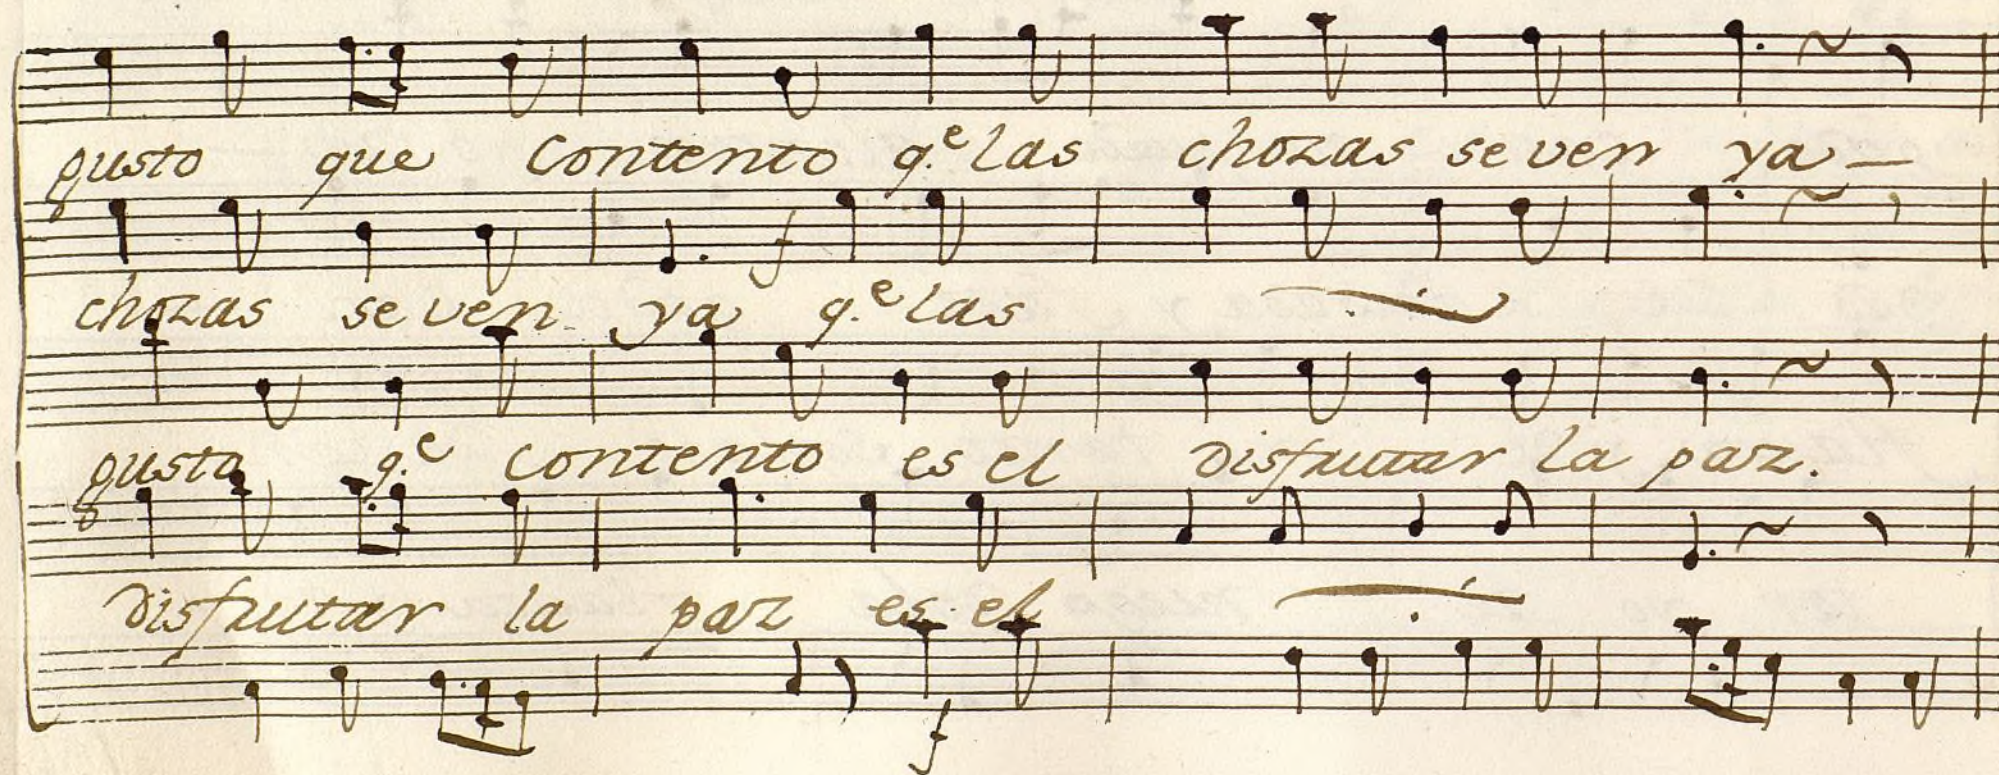 gusto que contento q.e las chozas se ven ya
f
chozas se ven ya q.e las
gusto q.e contento es el disfrutar la paz.
disfrutar la paz es el
f